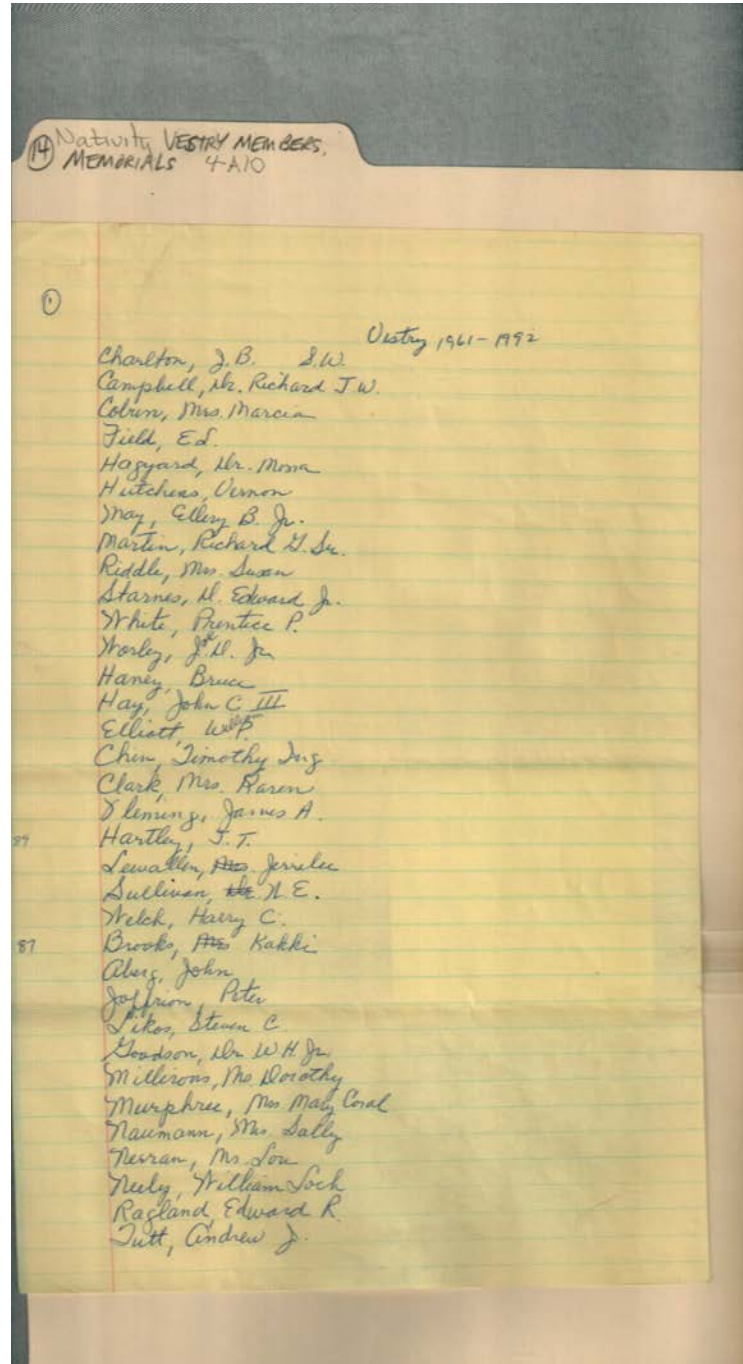 14 Nativity VESTRY MEMBERS,
MEMORIALS 4-A10
1
Vestry 1961-1992
Charlton, J.B. S.W.
Campbell, Dr. Richard J.W.
Mrs. Marcia
Field, Ed.
Hagyard, Dr. Mona
Hutchens, Vernon
May, Ellery B. Jr.
Martin, Richard G. Sr.
Riddle, Mrs. Susan
Starnes, D. Edward Jr.
White, Prentice P.
Worley, D. Jr
Haney, Bruce
Hay, John C III
Elliott
Chin, Timothy
Clark, Mrs. Karen
Fleming, James A.
89 Hartley, J.T.
Lewallen, Mrs. Jerrilee
Sullivan, N.E.
Welch, Harry C.
87 Brooks, Mrs Kakki
Aberg, John
Joffrion, Peter
Likos, Steven C
Goodson, Dr W.H. Jr.
Millirons, Ms Dorothy
Murphree, Mrs Mary Coral
Naumann, Mrs Sally
Ms Lou
Neely, William Lock
Ragland, Edward R.
Tutt, Andrew J.